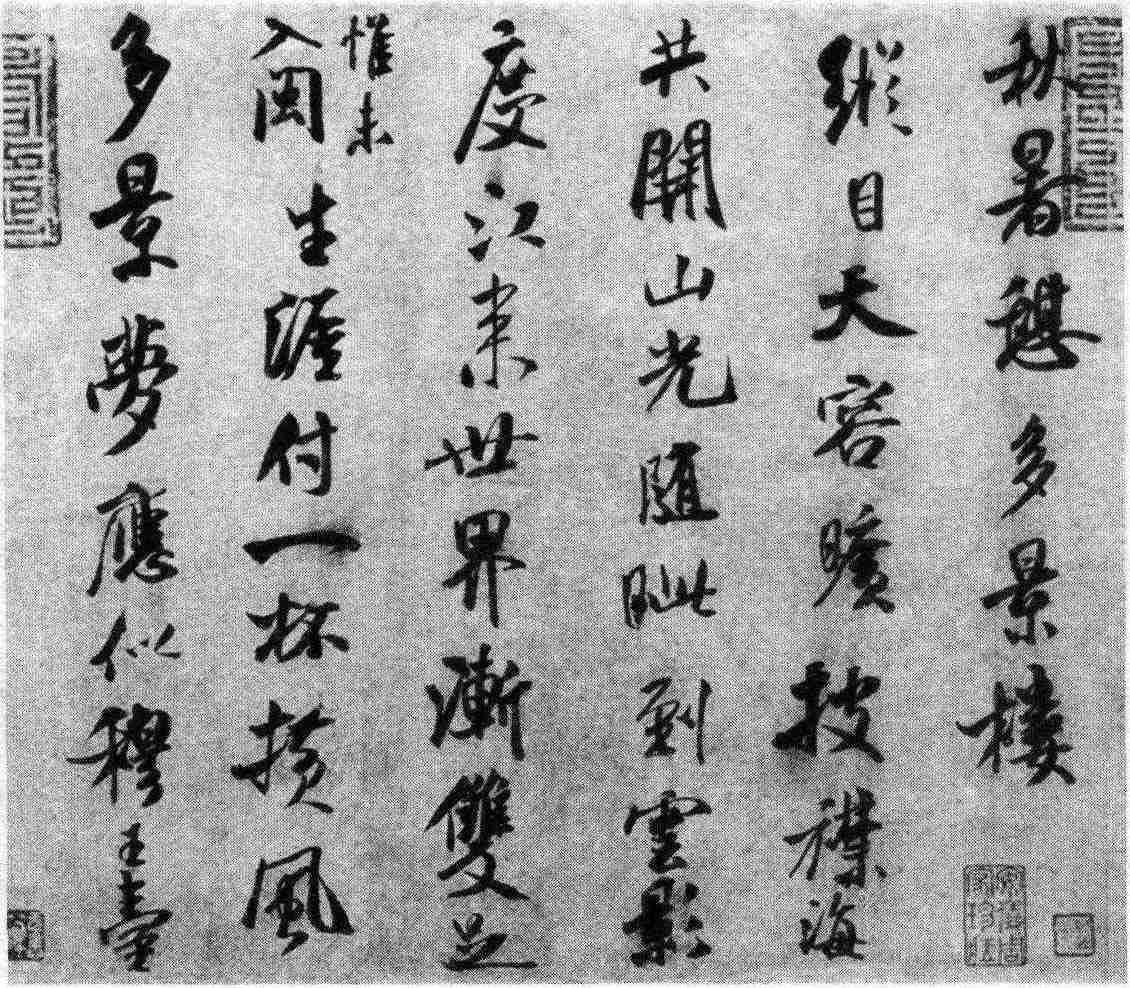 秋暑憩多景樓
縱目天容曠披襟海
共開山光隨眦到雲影
度江來世界漸雙足
惟未
入閩
生涯付一杯橫風
多景夢應似穆王臺